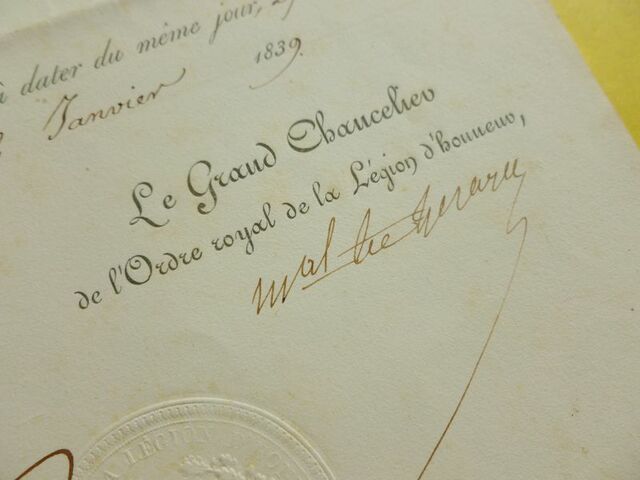 à dater du même jour, 29
Janvier 1839.
Le Grand Chancelier
de l'Ordre royal de la Légion d'honneur,
Mal
LÉGION